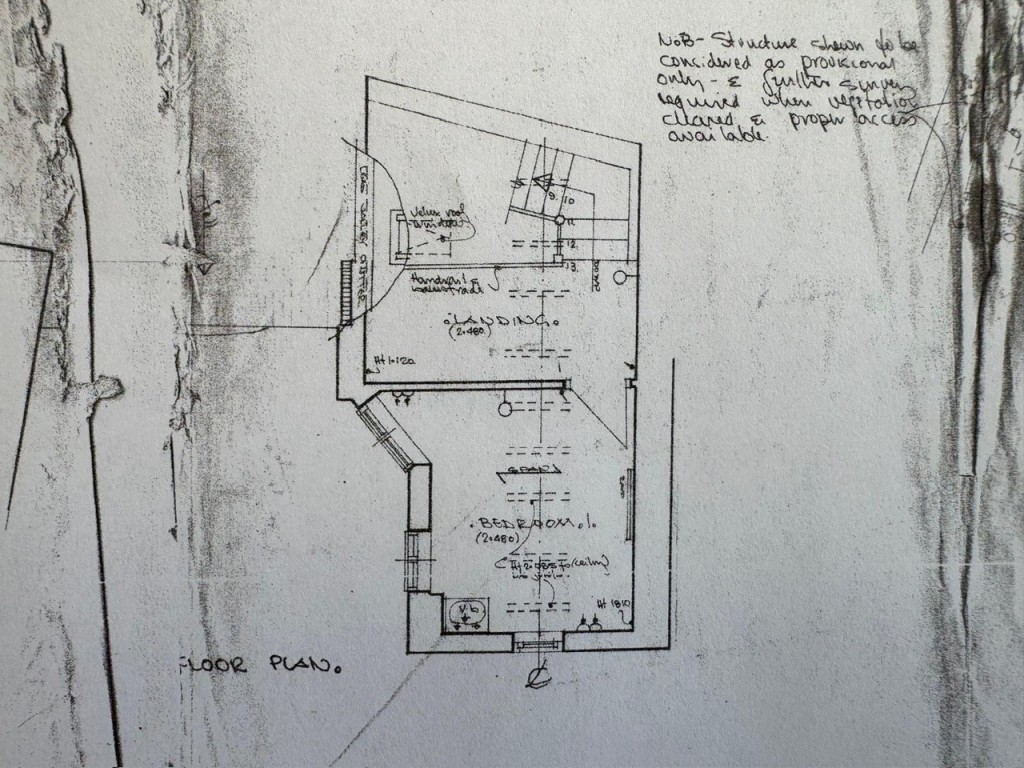 NoB - Structure shewn to be
considered as provisional
only - & further survey
required when vegetation
cleared & proper access
available.
9. 10
11.
Velux roof
window
12.
13.
Handrail &
balustrade
LANDING.
(2.480)
Ht 1.120
BEDROOM.1.
(2.480)
Ht 2.085 to (ceiling)
Ht 1810
FLOOR PLAN.